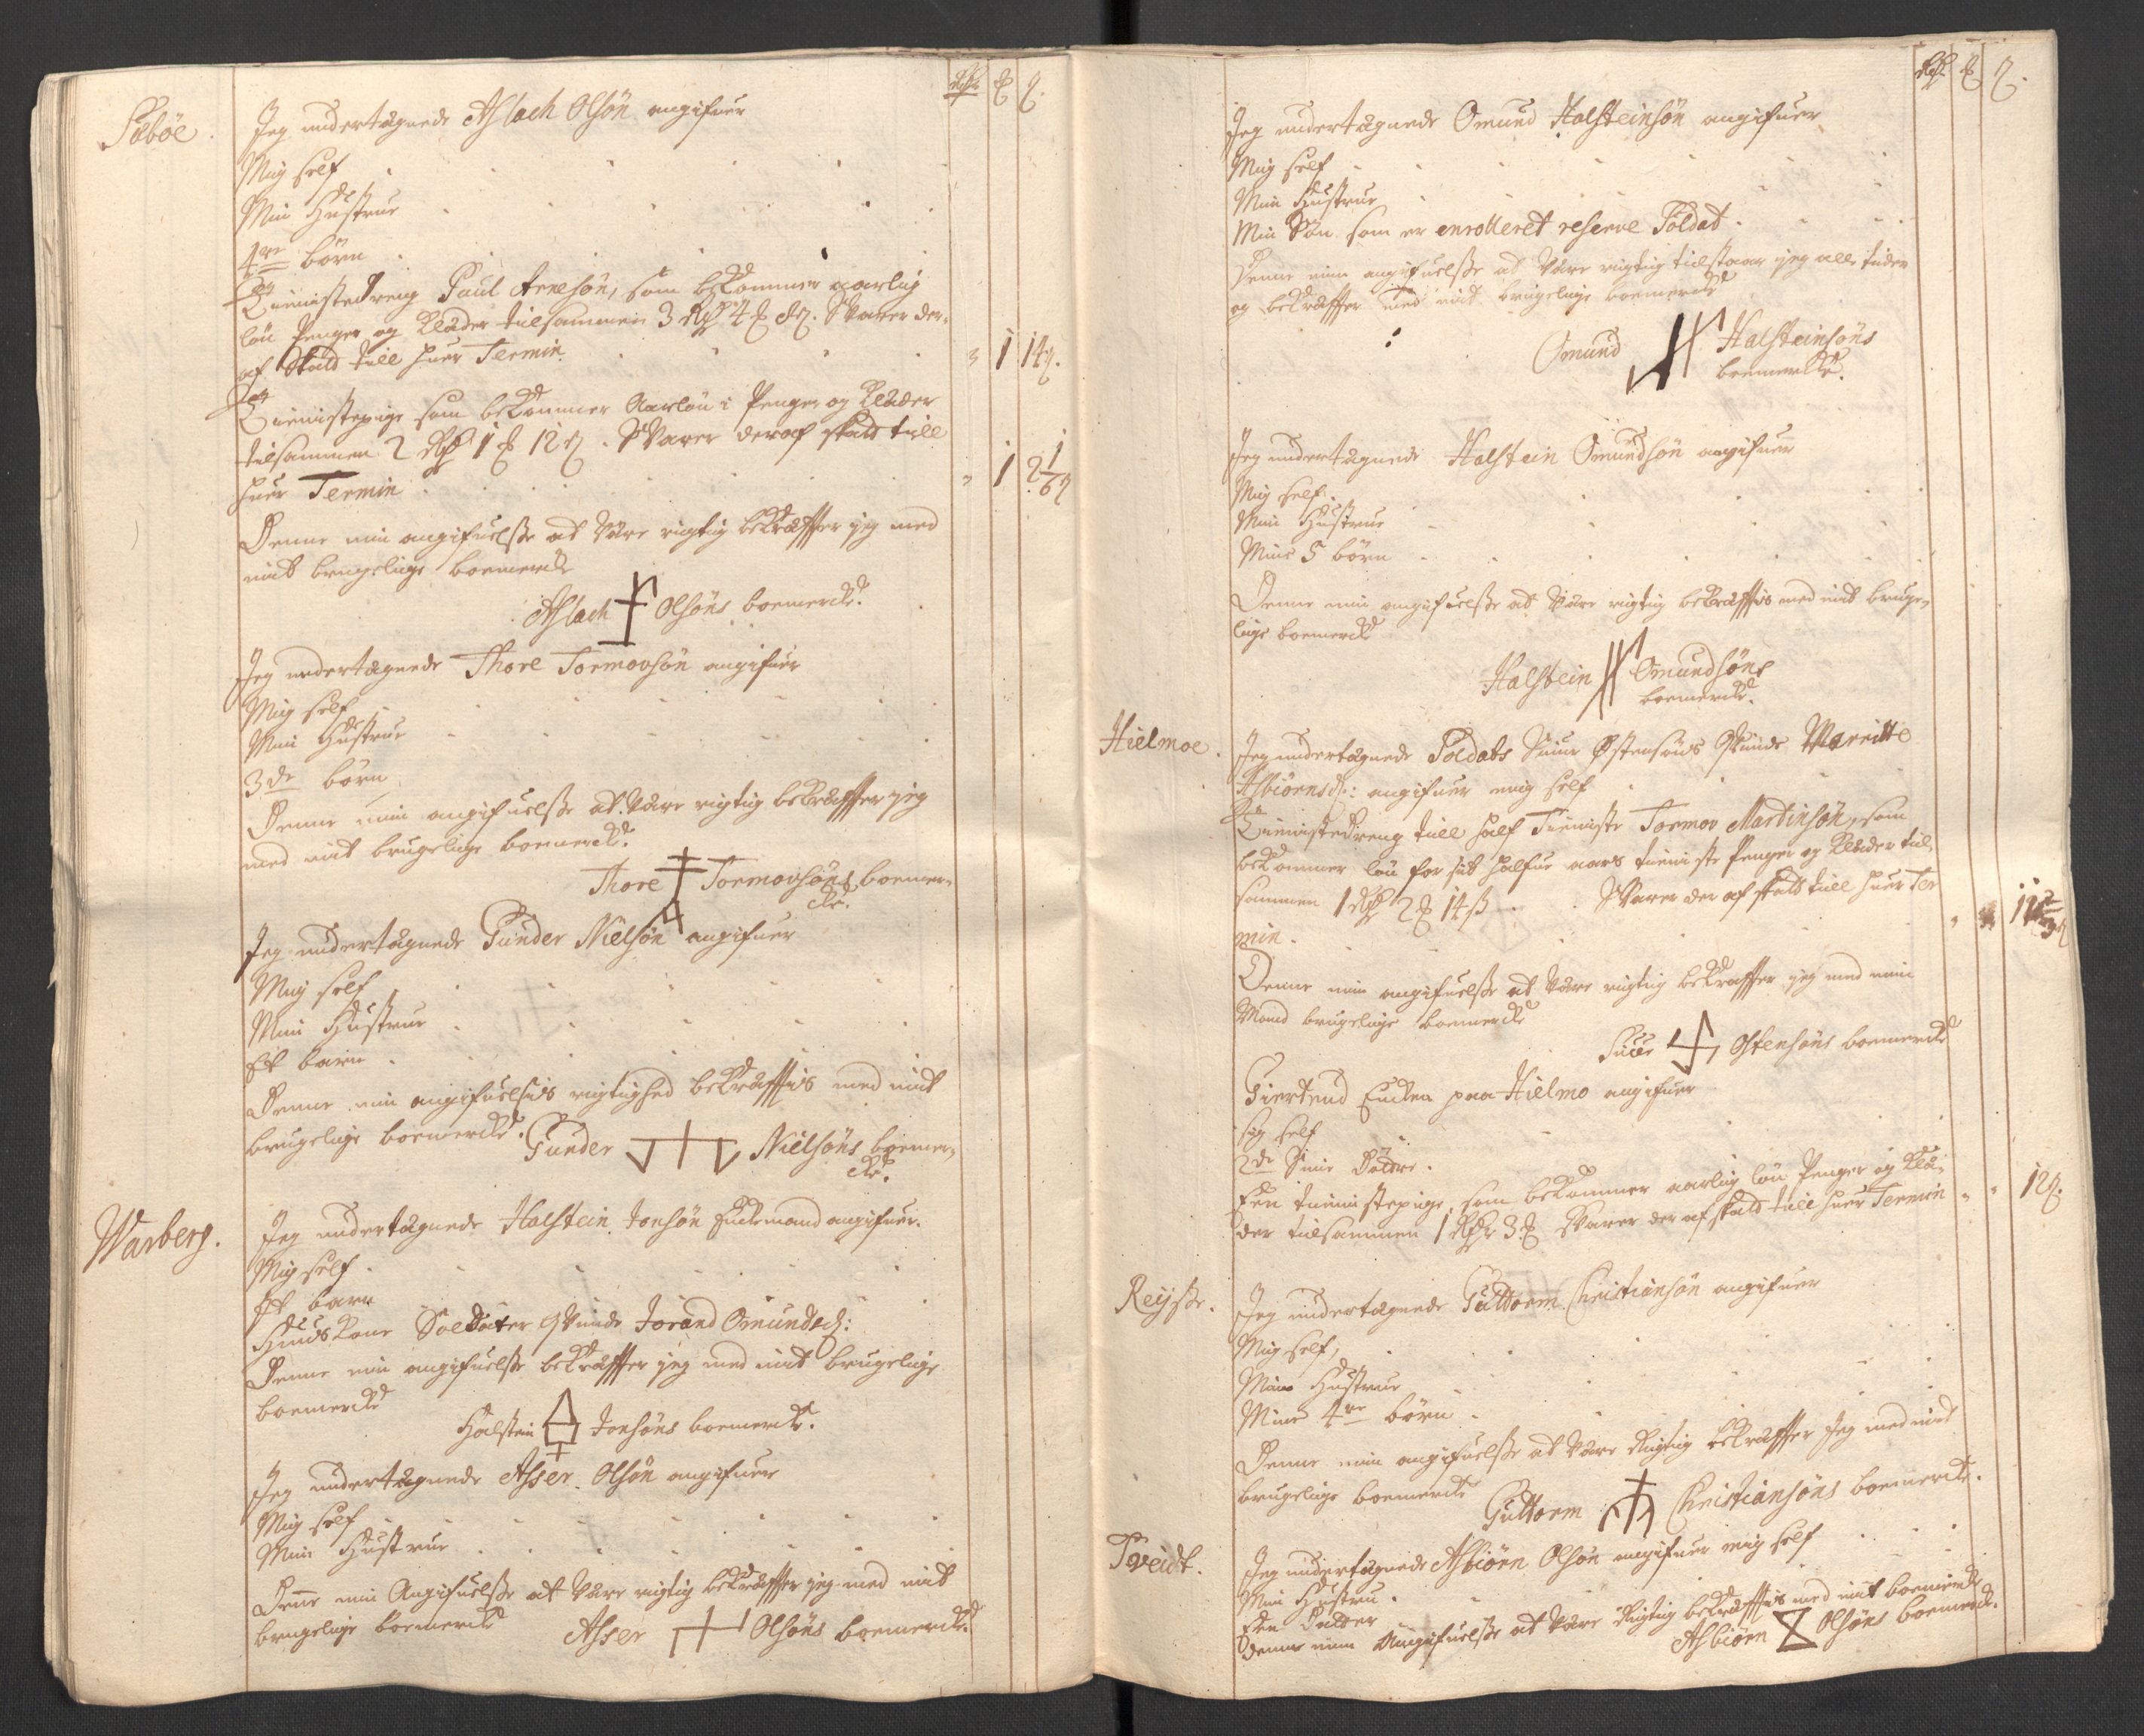 Rdr ƶ ꝭ.
Sæbøe. Jeg undertegnede Aslach Olsøn angifuer
Mig self
Min Hustrue
4re børn
En Tieniste Dreng Paul Arnesøn, som bekommer aarlig
løn Penger og Klæder tilsammen 3 Rdr 4 ƶ 8 ꝭ. Svarer der-
af Skatt till huer Termin " 1 14 ꝭ.
En Tienistepige som bekommer Aarløn i Penge og Klæder
tilsammen 2 Rdr 1 ƶ 12 ꝭ. Svarer deraf skatt till
huer Termin " 1 2 1/6 ꝭ
Denne min angifuelsse at være rigtig bekræffter jeg med
mit brugelige boemercke
Aslach Olsøns boemercke.
Jeg undertegnede Thore Tormovsøn angifuer
Mig self
Min Hustrue
3de børn
Denne min angifuelsse at være rigtig bekræffter jeg
med mit brugelige boemercke.
Thore Tormovsøns boemer-
cke.
Jeg undertegnede Gunder Nielsøn angifuer
Mig self
Min Hustrue
Et barn
Denne min angifuelsis rigtighed bekræfftis med mit
brugelige boemercke. Gunder Nielsøns boemer-
cke.
Warberg. Jeg undertegnede Halstein Jonsøn Enckemand angifuer.
Mig self
Et barn
Huuskone Soldater Qvinde Jorand Omundsd:
Denne min angifuelsse bekræffter jeg med mit brugelige
boemercke
Halstein Jonsøns boemercke.
Jeg undertegnede Asser Olsøn angifuer
Mig self
Min Hustrue
Denne min Angifuelsse at være rigtig bekræffter jeg med mit
brugelige boemercke Asser Olsøns boemercke.
Rdr ƶ ꝭ.
Jeg undertegnede Omund Halsteinsøn angifuer
Mig self
Min Hustrue
Min Søn som er enrolleret reserve Soldat.
Denne min angifuelsse at være rigtig tilstaar jeg alle tider
og bekræffter med mit brugelige boemercke
Omund Halsteinsøns
boemercke.
Jeg undertegnede Halstein Omundsøn angifuer
Mig self
Min Hustrue
Mine 5 børn
Denne min angifuelsse at være rigtig bekræfftis med mit bruge-
lige boemercke
Halstein Omundsøns
boemercke.
Hielmoe. Jeg undertegnede Soldats Siur Østensøns Qvinde Maritte
Asbiørnsd: angifuer mig self
En Tieniste Dreng till half Tieniste Tormov Martinsøn, som
bekommer løn for sit halfue aars tieniste Penger og Klæder til-
sammen 1 Rdr 2 ƶ 14 ß. Svarer der af skatt till huer Ter
min.
Denne min angifuelsse at være rigtig bekræffter jeg med min
Mand brugelige boemercke
Siur Østensøns boemercke
Giertrud Encken paa Hielmo angifuer
sig self
2de Sine Døttre.
Een tienistepige, som bekommer aarlig løn Penger og Klæ-
der tilsammen 1 Rdr 3 ƶ svarer der af skatt till huer Termin " " 12 ꝭ.
Reysse. Jeg undertegnede Guttorm Christiansøn angifuer
Mig self,
Min Hustrue
Mine 4re børn
Denne min angifuelsse at være Rigtig bekræffter Jeg med mit
brugelige boemercke Guttorm Christiansøns boemercke.
Tveidt. Jeg undertegnede Asbiørn Olsøn angifuer mig self
Min Hustru.
Een Datter
Denne min Angifuelsse at være Rigtig bekræfftis med mit boemercke
Asbiørn Olsøns boemerck.